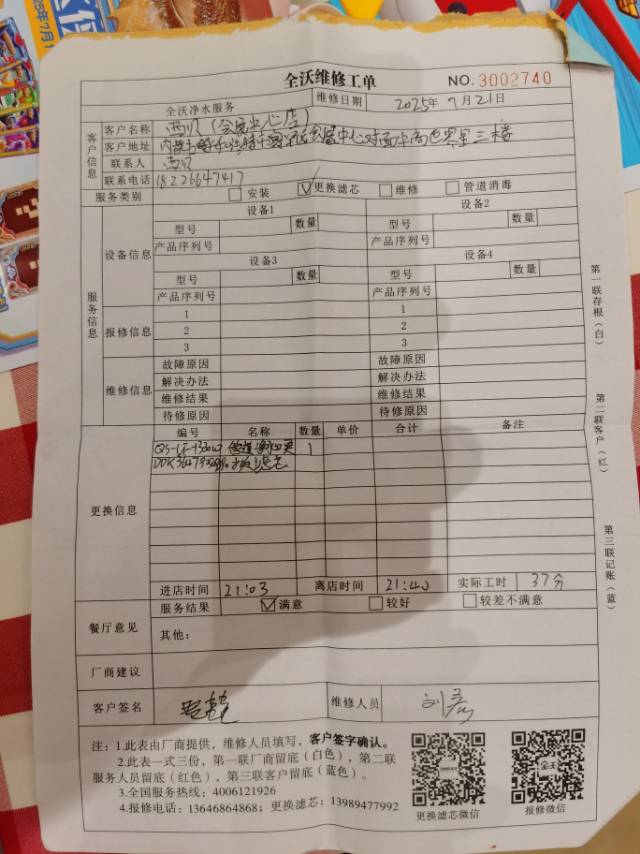 全沃维修工单
NO.3002740
全沃净水服务 维修日期 2025年7月21日
客户信息
客户名称 西贝(会展中心店)
客户地址
联系人 西贝
联系电话 18226647417
服务类别 安装 更换滤芯 维修 管道消毒
服务信息
设备信息
设备1 设备2
型号 数量 型号 数量
产品序列号 产品序列号
设备3 设备4
型号 数量 型号 数量
产品序列号 产品序列号
报修信息
1 1
2 2
3 3
维修信息
故障原因 故障原因
解决办法 解决办法
维修结果 维修结果
待修原因 待修原因
更换信息
编号 名称 数量 单价 合计 备注
1
滤芯
进店时间 21:03 离店时间 21:40 实际工时 37分
餐厅意见
服务结果 满意 较好 较差不满意
其他:
厂商建议
客户签名 维修人员 刘彦
注:1.此表由厂商提供,维修人员填写,客户签字确认。
2.此表一式三份,第一联厂商留底(白色),第二联
服务人员留底(红色),第三联客户留底(蓝色)。
3.全国服务热线:4006121926
4.报修电话:13646864868;更换滤芯:13989477992
更换滤芯微信 报修微信
第一联存根(白)
第二联客户(红)
第三联记账(蓝)